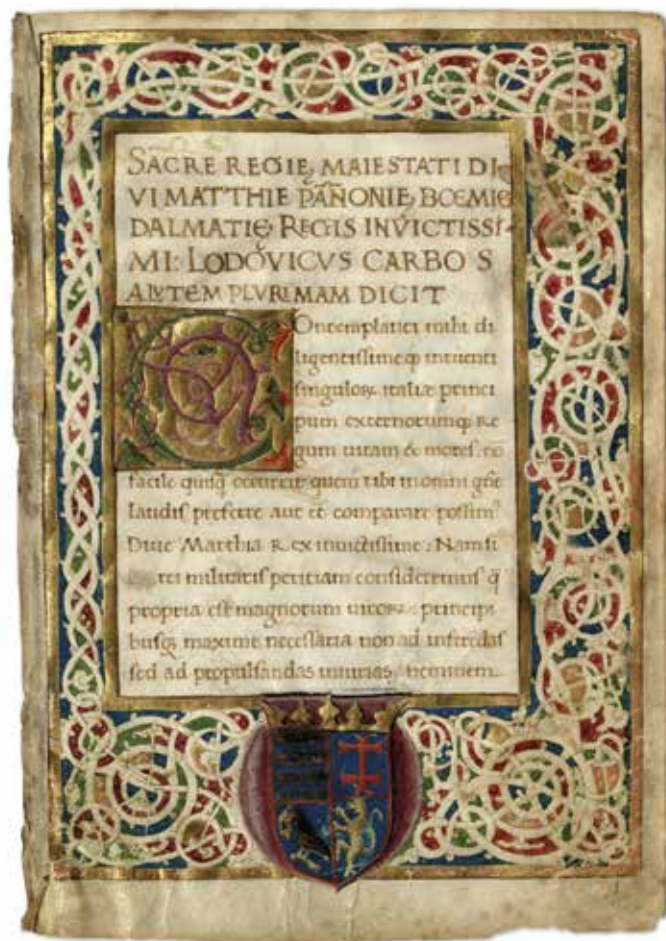 SACRE REGIE MAIESTATI DI
VI MATTHIE PAÑONIE, BOEMIE
DALMATIE REGIS INVICTISSI
MI: LODOVICVS CARBO S
ALVTEM PLVRIMAM DICIT
COntemplanti mihi di
ligentissimeq; intuenti
singuloꝝ italiæ princi
pum externorumq; Re
gum uitam & mores: nō
facile quisq̃ occurrit quem tibi in omni gñe
laudis preferre aut et comparare possim?
Diue Matthia Rex inuictissime: Nam si
rei militaris peritiam consideremus q̃
propria est magnorum uiroꝝ: principi
busq; maxime necessaria non ad inferēdas
sed ad propulsandas iniurias, neminem